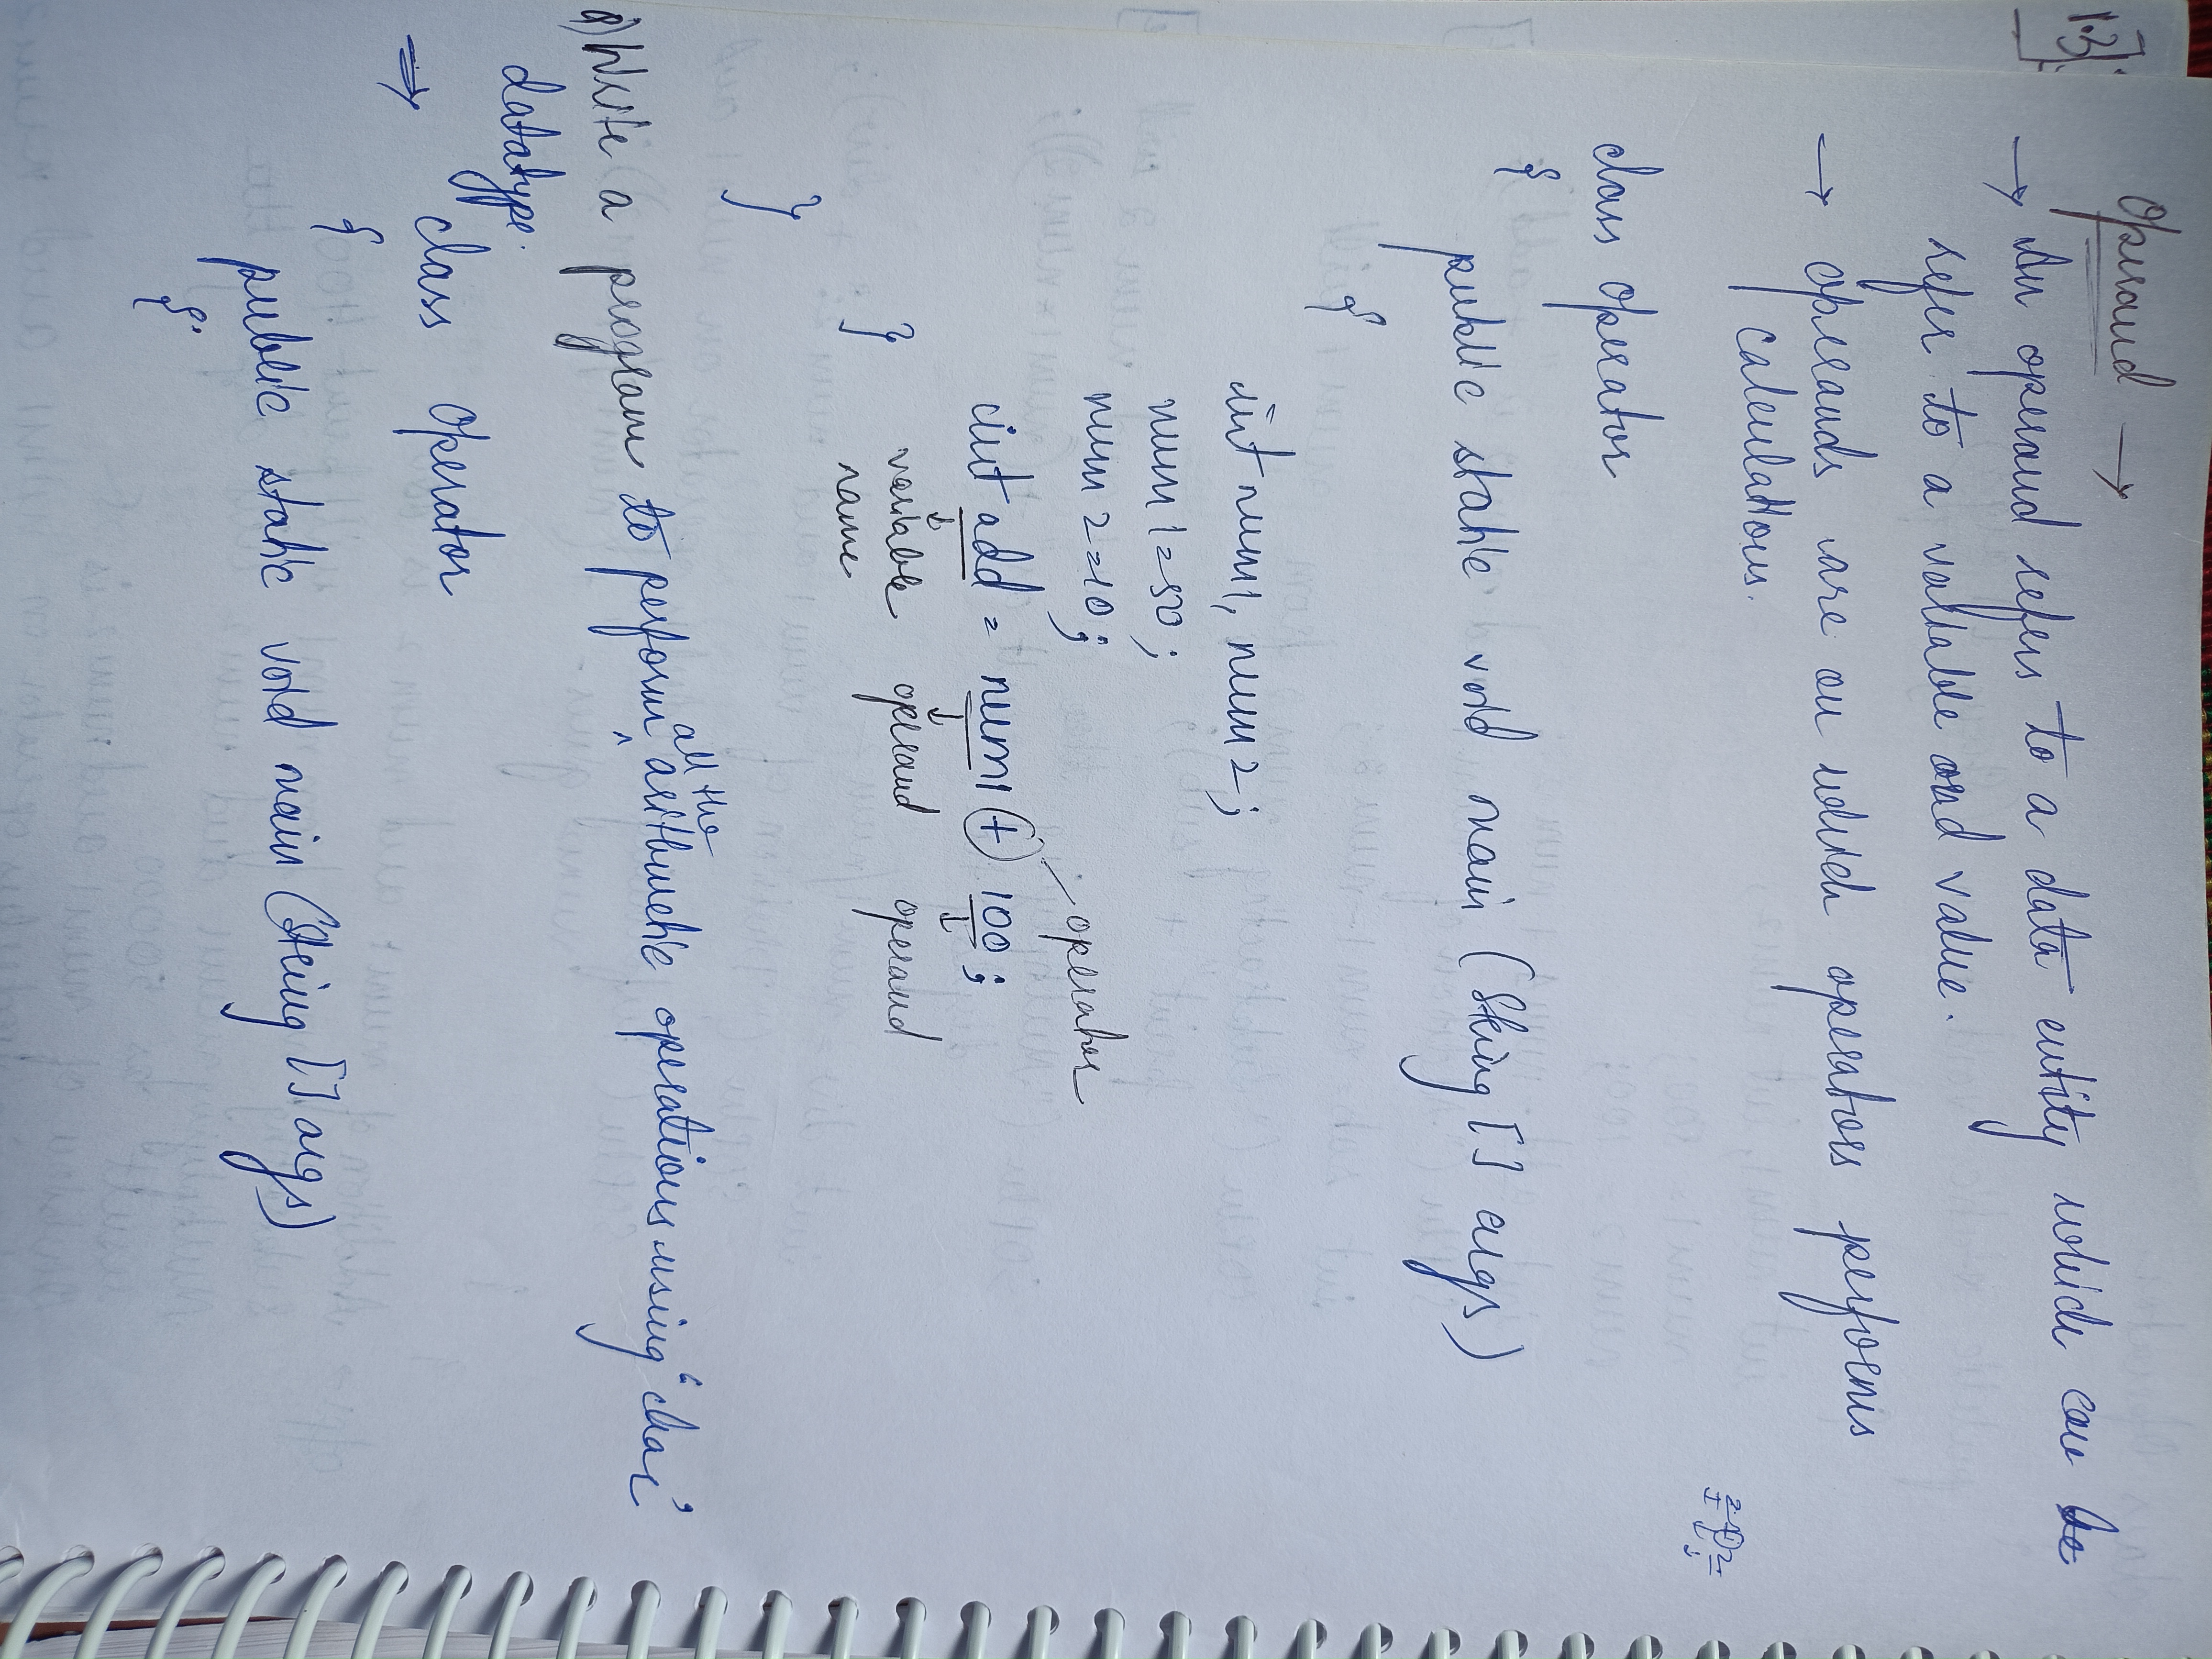 1.3]
Operand →
→ An operand refers to a data entity which can be
refer to a variable and value.
→ operands are on which operators performs
calculations.
class operator
{
public static void main (String [] args)
{
int num1, num2;
num1 = 50;
num2 = 10;
operator
int add = num1 + 100;
↓ ↓ ↓
variable operand operand
name
}
}
Q) Write a program to perform all the arithmetic operations using "char"
datatype.
⇒ class operator
{
public static void main (String [] args)
{